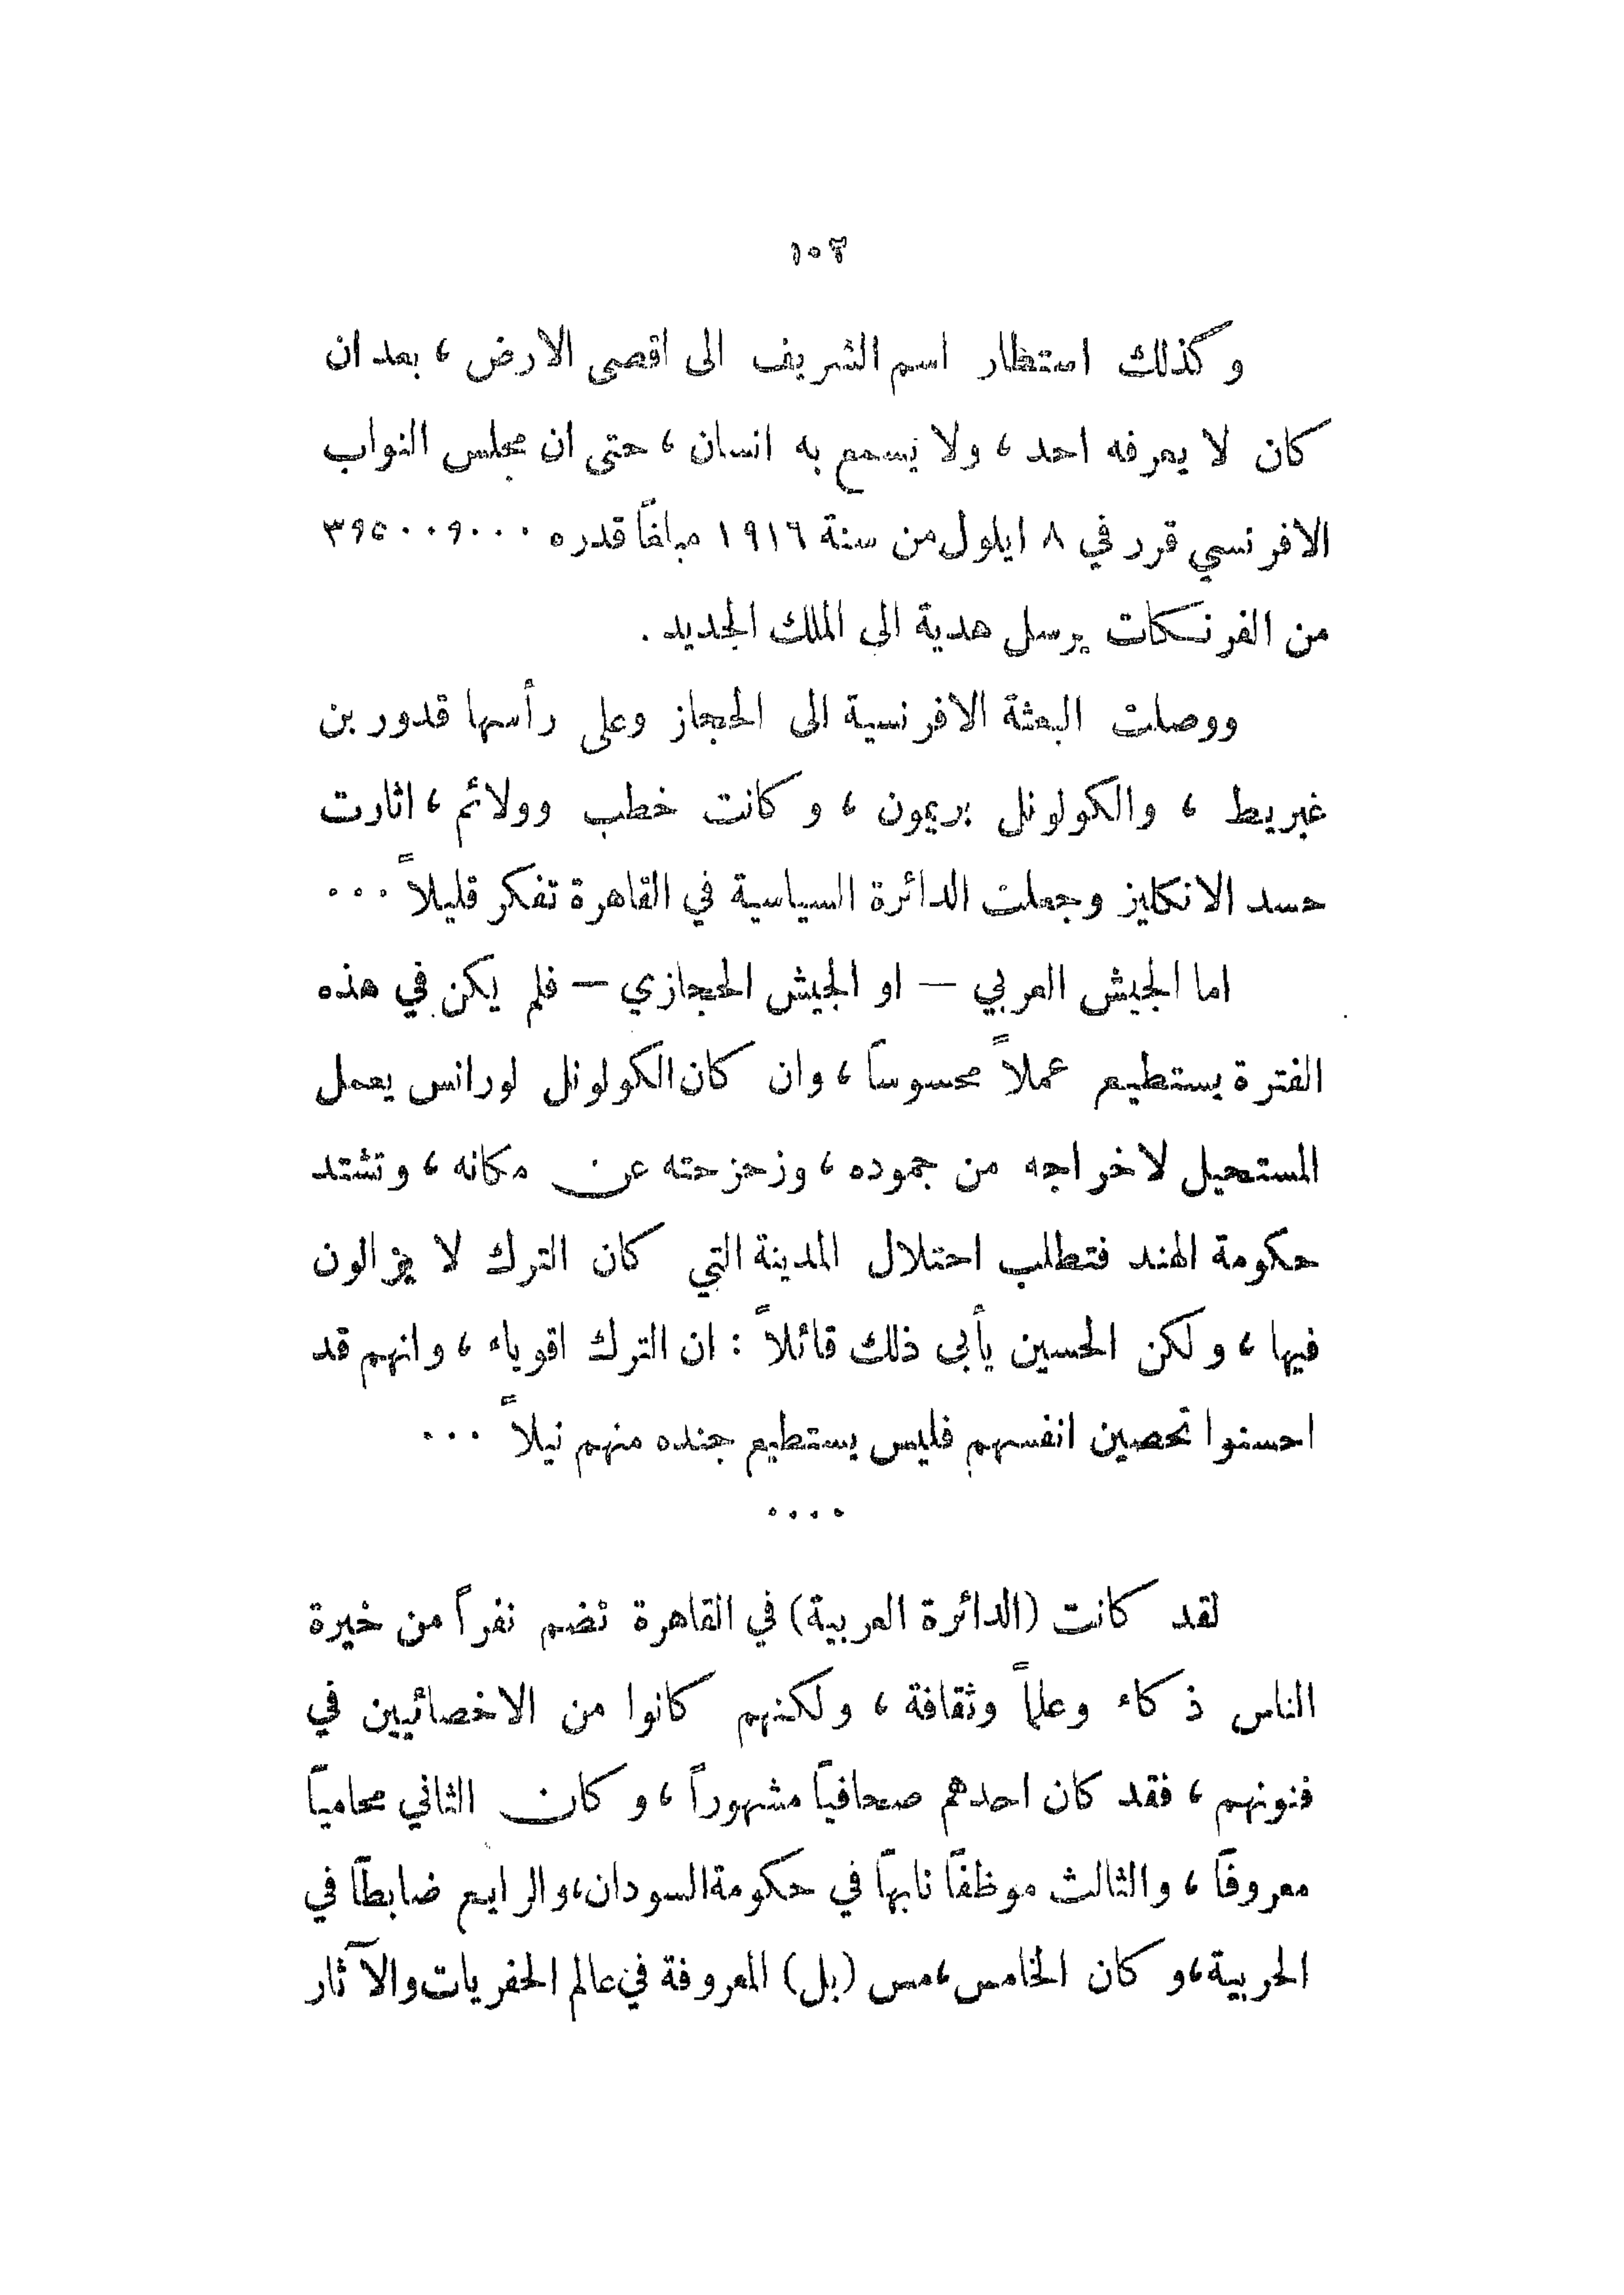 ١٥٢
وكذلك استظار اسم الشريف الى اقصى الارض ، بعد ان
كان لا يعرفه احد ، ولا يسمع به انسان ، حتى ان مجلس النواب
الافرنسي قرر في ٨ ايلول من سنة ١٩١٦ مبلغاً قدره
من الفرنكات يرسل هدية الى الملك الجديد .
ووصلت البعثة الافرنسية الى الحجاز وعلى رأسها قدور بن
غبريط ، والكولونل بريمون ، وكانت خطب وولائم ، اثارت
حسد الانكليز وجعلت الدائرة السياسية في القاهرة تفكر قليلاً ...
اما الجيش العربي – او الجيش الحجازي – فلم يكن في هذه
الفترة يستطيع عملاً محسوساً ، وان كان الكولونل لورانس يعمل
المستحيل لاخراجه من جموده ، وزحزحته عن مكانه ، وتشتد
حكومة الهند فتطلب احتلال المدينة التي كان الترك لا يزالون
فيها ، ولكن الحسين يأبى ذلك قائلاً : ان الترك اقوياء ، وانهم قد
احسنوا تحصين انفسهم فليس يستطيع جنده منهم نيلاً ...
....
لقد كانت (الدائرة العربية) في القاهرة تضم نفراً من خيرة
الناس ذكاء وعلماً وثقافة ، ولكنهم كانوا من الاخصائيين في
فنونهم ، فقد كان احدهم صحافياً مشهوراً ، وكان الثاني محامياً
معروفاً ، والثالث موظفاً نابهاً في حكومة السودان، والرابع ضابطاً في
الحربية، وكان الخامس، مس (بل) المعروفة في عالم الحفريات والآثار